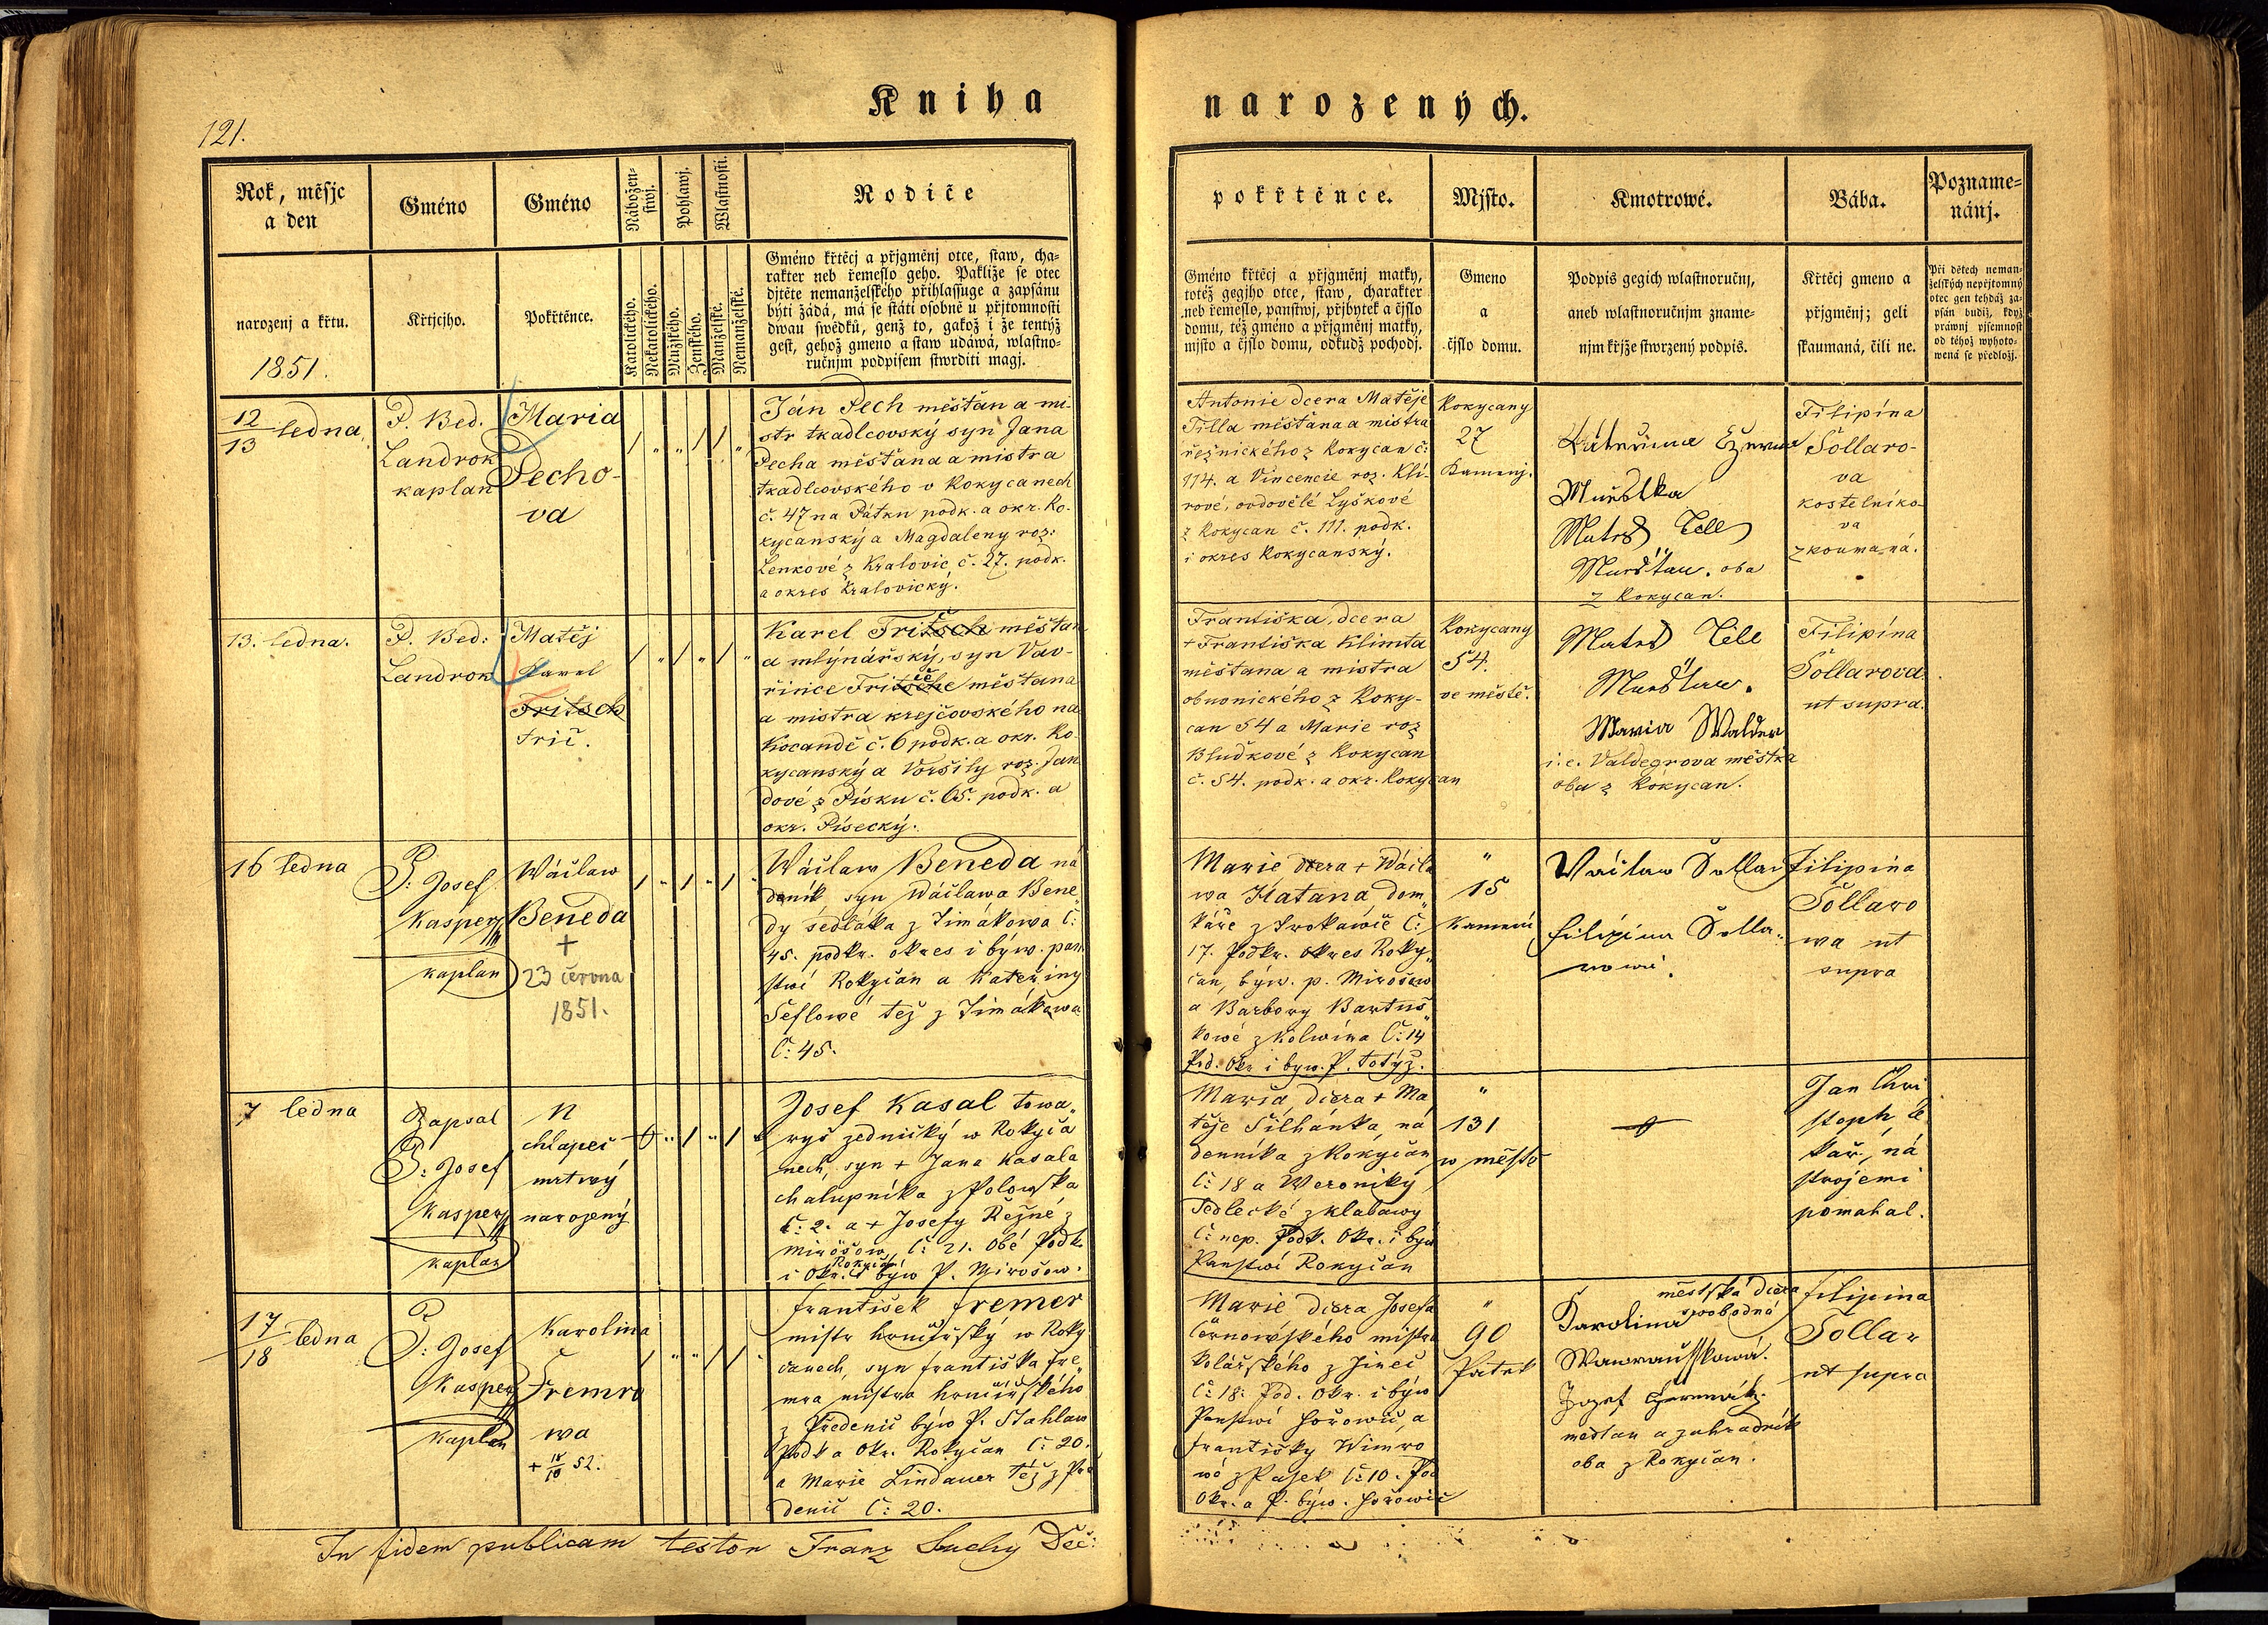 121.
Kniha
narozených.
Rok, měsjc
a den
narozenj a křtu.
1851.
Gméno
Křtjcjho.
Gméno
Pokřtěnce.
Nábožen-
stwj.
Pohlawj.
Wlastnosti.
Katolického.
Nekatolického.
Mužského.
Ženského.
Manželské.
Nemanželské.
Rodiče
Gméno křtěcj a přjgměnj otce, staw, cha-
rakter neb řemeslo geho. Pakliže se otec
djtěte nemanželského přihlassuge a zapsánu
býti žádá, má se státi osobně u přjtomnosti
dwau swědků, genž to, gakož i že tentýž
gest, gehož gmeno a staw udáwá, wlastno-
ručnjm podpisem stwrditi magj.
pokřtěnce.
Gméno křtěcj a přjgměnj matky,
totéž gegjho otce, staw, charakter
neb řemeslo, panstwj, přjbytek a čjslo
domu, též gméno a přjgměnj matky,
mjsto a čjslo domu, odkudž pochodj.
Mjsto.
Gmeno
a
čjslo domu.
Kmotrowé.
Podpis gegich wlastnoručnj,
aneb wlastnoručnjm zname-
njm křjže stwrzený podpis.
Bába.
Křtěcj gmeno a
přjgměnj; geli
skaumaná, čili ne.
Pozname-
nánj.
Při dětech neman-
želských nepřjtomný
otec gen tehdáž za-
psán budiž, když
práwnj pjsemnost
od téhož wyhoto-
wená se předložj.
12
13 ledna
P. Bed.
Landrok
kaplan
Maria
Pecho-
va
Ján Pech měšťan a mi-
str tkadlcovský syn Jana
Pecha měšťana a mistra
tkadlcovského v Rokycanech
č. 47 na Pátku podk. a okr. Ro-
kycanský a Magdaleny roz:
Lenkové z Kralovic č. 27. podk.
a okres Kralovický.
Antonie dcera Matěje
Tilla měšťana a mistra
řeznického z Rokycan č:
114. a Vincencie roz. Klí-
rové, ovdovělé Lyškové
z Rokycan č. 111. podk.
i okres Rokycanský.
Rokycany
27
Kamenj.
Kateřina
Matěs Tell
Mursťan. oba
z Rokycan.
Filipína
Šollaro-
va
kostelníko-
va
zkoumaná.
13. ledna.
P. Bed:
Landrok
Matěj
Karel
Fritsch
Frič.
Karel Fritsch měšťan
a mlýnářský, syn Vav-
řince Fritsche měšťana
a mistra krejčovského na
Kocandě č. 6 podk. a okr. Ro-
kycanský a Voršily roz. Jan
dové z Písku č. 65. podk. a
okr. Písecký.
Františka, dcera
+ Františka Klimta
měšťana a mistra
obuvnického z Roky-
can 54 a Marie roz
Bludkové z Rokycan
č. 54. podk. a okr. Rokycan
Rokycany
54.
ve městě.
Matěs Tell
Maria Walder
i. e. Valdegrova měštka
oba z Rokycan.
Filipína
Šollarova
ut supra.
16 ledna
P: Josef
Kasper
kaplan
Wáclaw
Beneda
+
23 června
1851.
Wáclaw Beneda ná
deník, syn Wáclawa Bene„
dy sedláka z Timákowa Č:
45. podkr. okres i býw. pan
stwí Rokycan a Kateřiny
Šeflowé též z Timákowa
Č: 45.
Marie dcera + Wácla
wa Hatana, dom„
káře z Trokawic Č:
17. Podkr. okres Roky„
can, býw. p. Mirošow
a Barbory Bartuš„
kowé z Kolwína Č: 14
Pod. Okr i byw. P. totýž.
„
15
Kamení
Wáclaw Šollar
Filipína Šolla„
rowá.
Filipína
Šollaro
wa ut
supra
7 ledna
Zapsal
P: Josef
Kasper
kaplan
N
chlapec
mrtwý
narozený
Josef Kasal towa„
ryš zednický w Rokyca
nech, syn + Jana Kasala
chalupníka z Polowska
Č: 2. a + Josefy Režné z
Mirošow, Č: 21. Obě Podk.
Rokycan
i Okr. býw P. Mirošow.
Maria, dcera + Ma
těje Šilhánka, ná
denníka z Rokycan
Č: 18 a Weroniky
Sedlecké z Klabawy
Č: nep. Podk. Okr. i býw
Panstwí Rokycan
„
131
w městě
Jan Chri
stoph, lé
kař, ná
strojemi
pomahal.
17
18 ledna
P: Josef
Kasper
kaplan
Karolina
Fremro
wa
+ 18/10 52.
František Fremer
mistr hrnčířský w Roky
canech, syn Františka Fre„
mra mistra hrnčířského
z Předenic býw P. Stahlaw
Podk a Okr. Rokycan Č: 20.
a Marie Lindauer též z Pře
denic Č: 20.
Marie dcera Josefa
Černowského mistra
Kolářského z Jinec
Č: 18: Pod. Okr. i býw
Panstwí Hořowic, a
Františky Wimro
wé z Pasek Č: 10. Pod
Okr. a P. býw. Hořowic
„
90
Patek
městská dcera
swobodná
Karolina
Wawrauškowá.
Jozef
mestan a zahradník
oba z Rokycan.
Filipina
Šollar
ut supra
In fidem publicam testor Franz Suchý Děč: